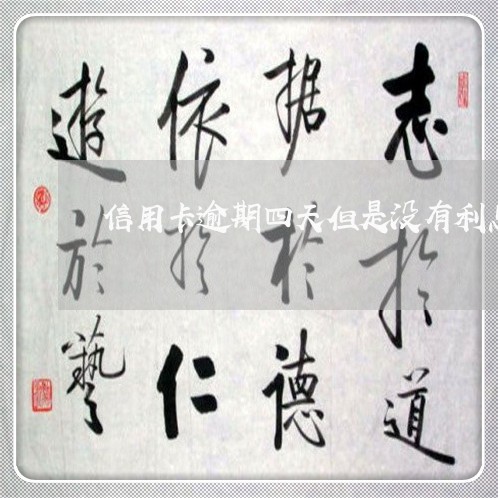 志於道
据於德
依於仁
遊於藝
信用卡逾期四天但是没有利